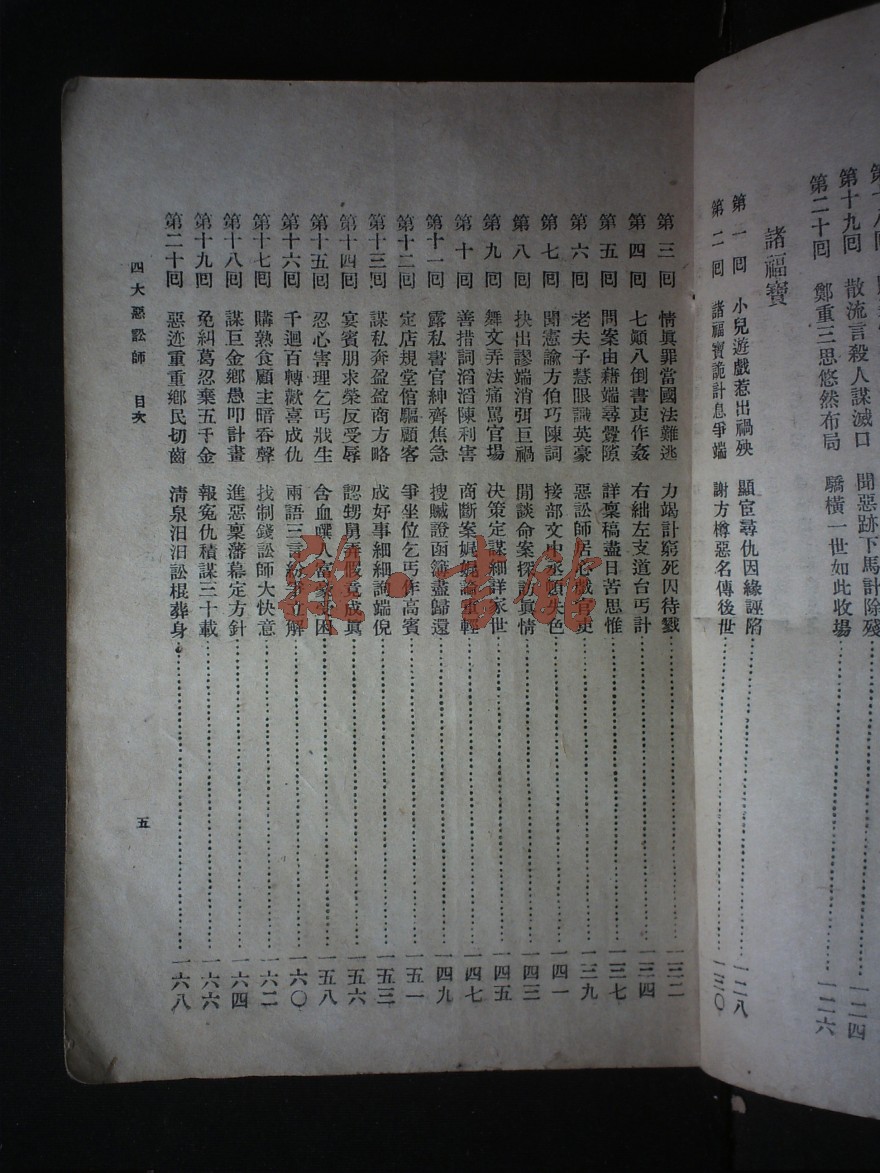 散流言殺人謀滅口 聞惡跡下馬計除殘……一二四
第十九囘
第二十囘 鄭重三思悠然布局 驕橫一世如此收場……一二六
諸福寶
第一囘 小兒遊戲惹出禍殃 顯宦尋仇因緣誣陷……一二八
第二囘 諸福寶詭計息爭端 謝方樽惡名傳後世……一三〇
第三囘 情眞罪當國法難逃 力竭計窮死囚待戮……一三二
第四囘 七顚八倒書吏作姦 右絀左支道台丐計……一三四
第五囘 問案由藉端尋釁隙 詳稟稿盡日苦思惟……一三七
第六囘 老夫子慧眼識英豪 惡訟師居心戲官吏……一三九
第七囘 聞憲諭方伯巧陳詞 接部文中丞頓失色……一四一
第八囘 抉出謬端消弭巨禍 閒談命案探訪眞情……一四三
第九囘 舞文弄法痛罵官場 決策定謀細詳家世……一四五
第十囘 善措詞滔滔陳利害 商斷案娓娓論重輕……一四七
第十一囘 露私書官紳齊焦急 搜贓證函簿盡歸還……一四九
第十二囘 定店規堂倌驅顧客 爭坐位乞丐作高賓……一五一
第十三囘 謀私奔盈盈商方略 成好事細細詢端倪……一五三
第十四囘 宴賓朋求榮反受辱 認甥舅弄假竟成眞……一五六
第十五囘 忍心害理乞丐戕生 含血噀人富家受困……一五八
第十六囘 千迴百轉歡喜成仇 兩語三言紛爭立解……一六〇
第十七囘 購熟食顧主暗吞聲 找制錢訟師大快意……一六二
第十八囘 謀巨金鄉愚叩計畫 進惡稟藩幕定方針……一六四
第十九囘 免糾葛忍棄五千金 報寃仇積謀三十載……一六六
第二十囘 惡迹重重鄉民切齒 淸泉汨汨訟棍葬身……一六八
四大惡訟師 目次
五
雜·書館